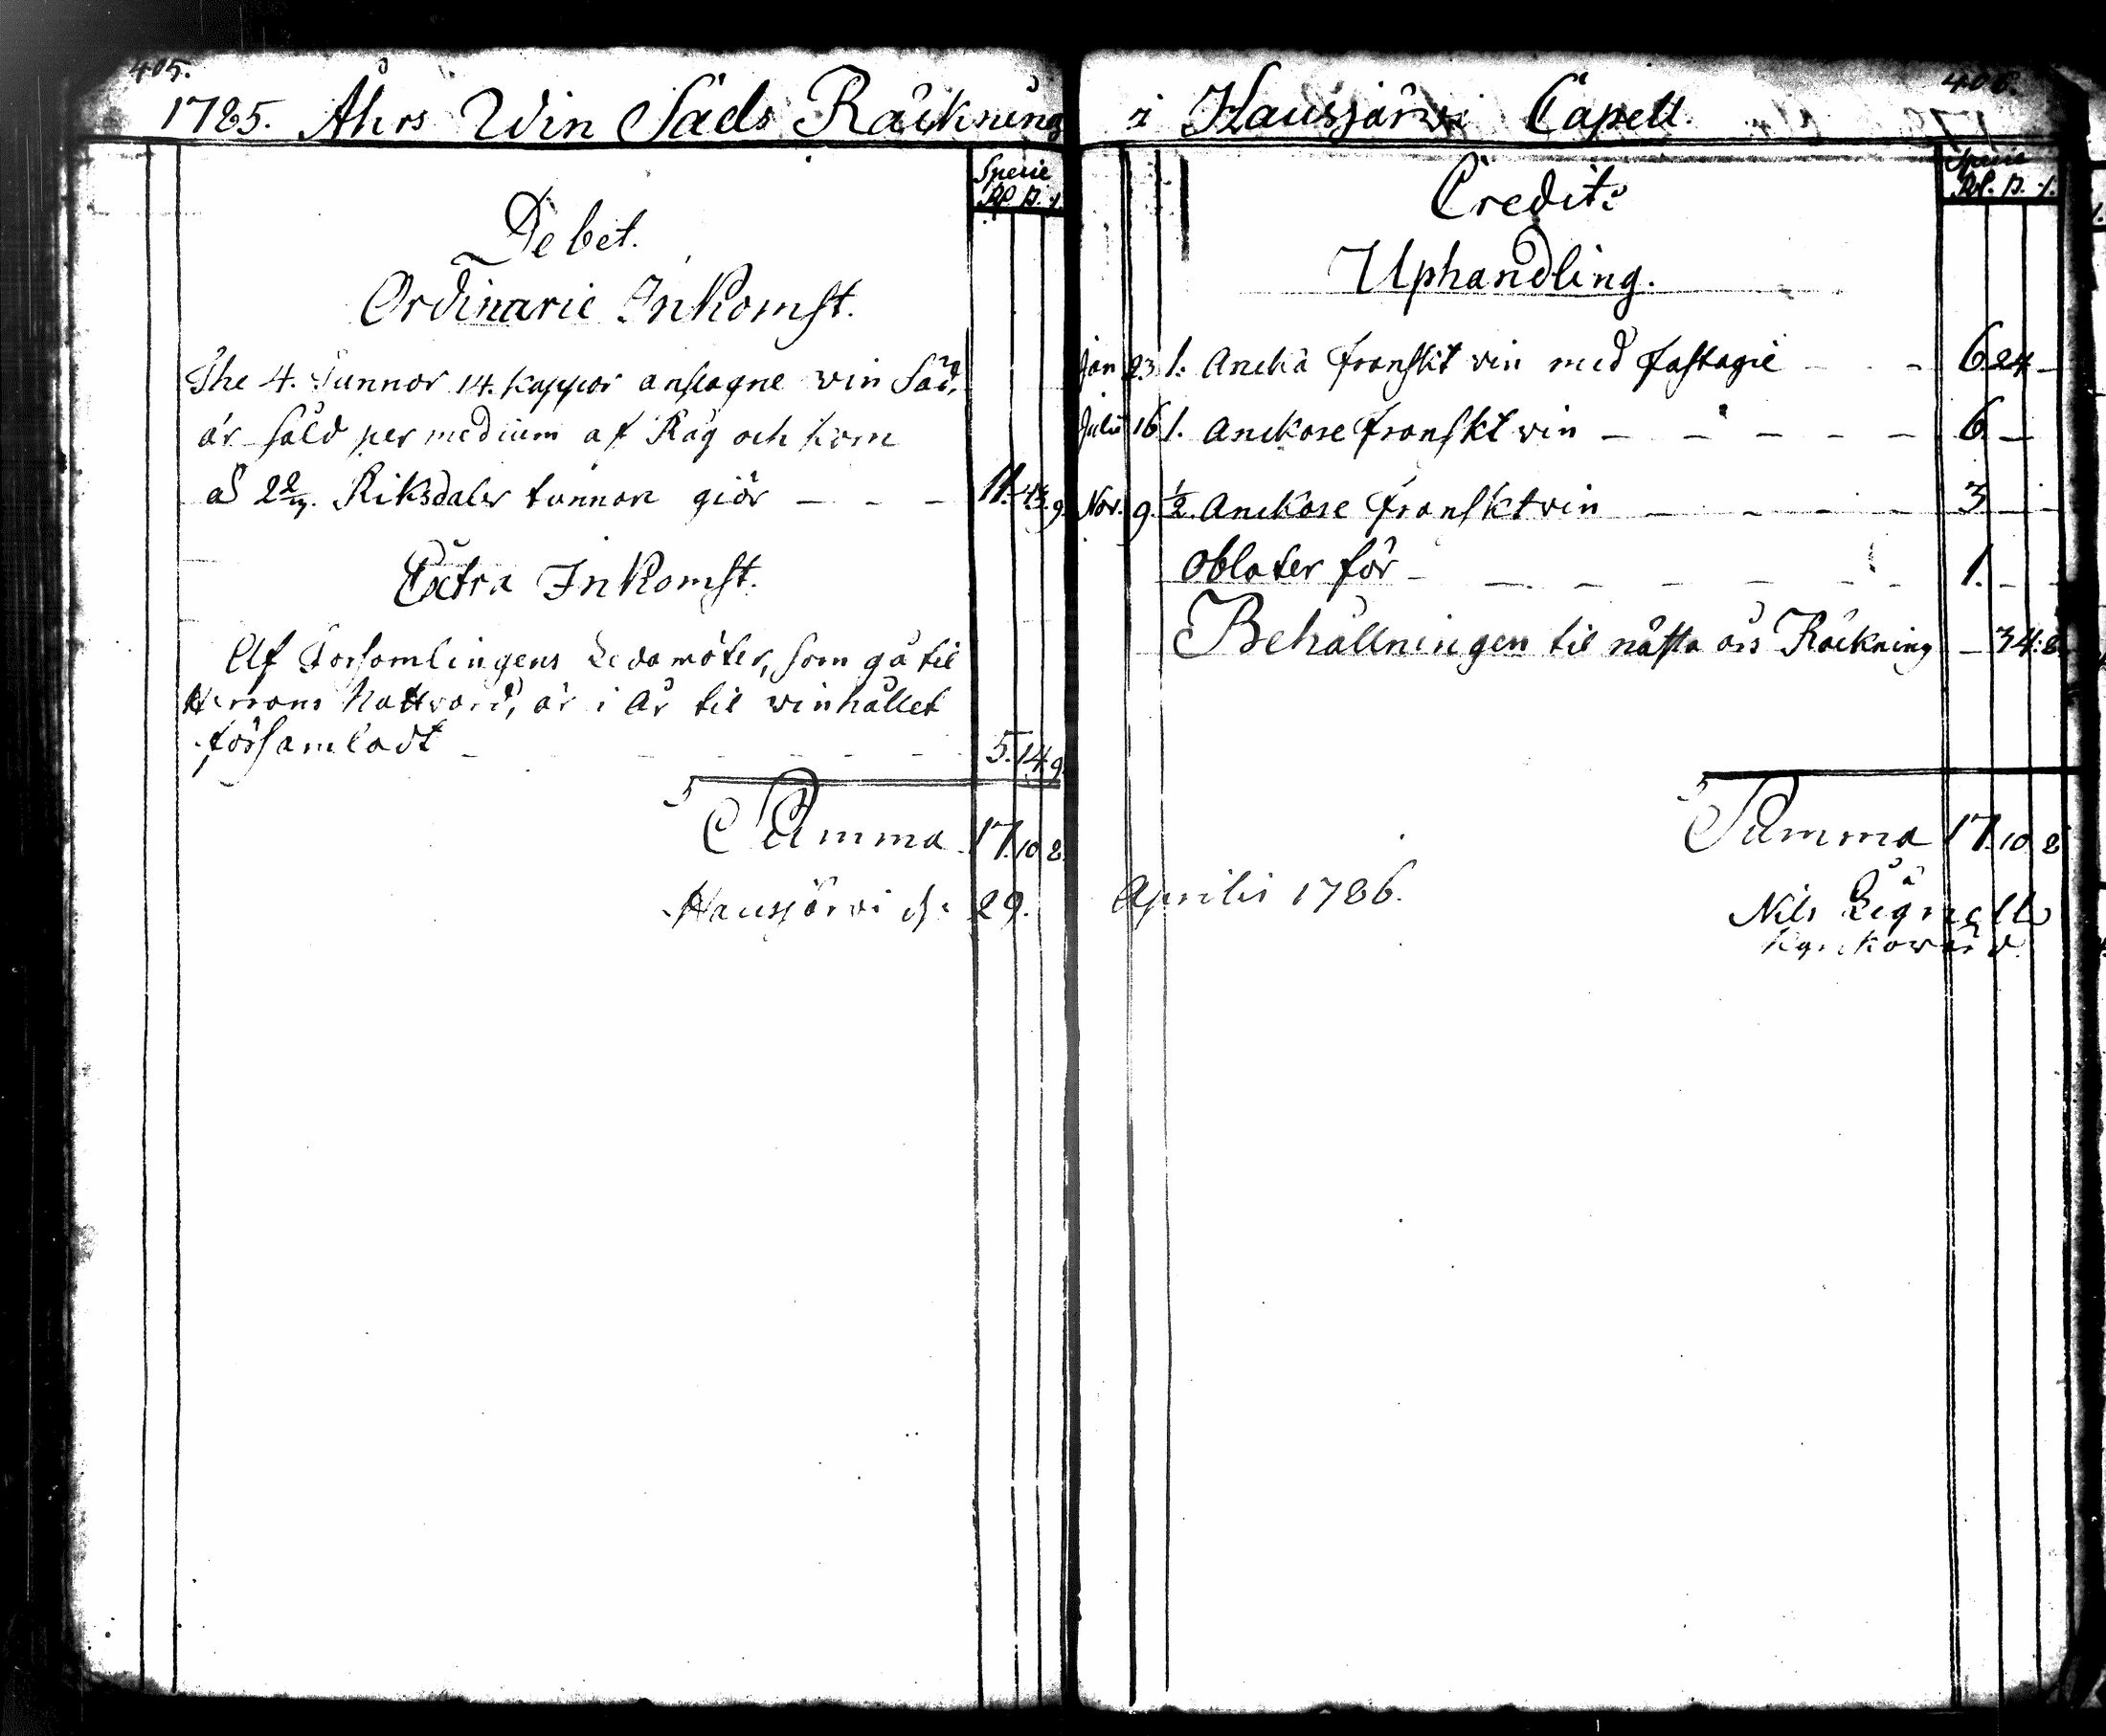 405.
1785. Åhrs Win Säds Räckning
Specie
Rd. ß. r.
Debet.
Ordinarie Inkomst.
The 4. Tunnor 14. kappor anslagne win Säd,
är såld per medium af Råg och korn
Riksdaler tunnan giör — — — 11. 43. 9.
Extra Inkomst.
Af Församlingens Ledamöter, som gå til
Herrans Nattvard, är i år til winhållet
församladt — — — 5. 14. 9.
Summa 17. 10. 8.
Hausjärwi d: 29.
406.
i Hausjärwi Capell.
Specie
Rd. ß. r.
Credit:
Uphandling.
Jan 23 1. Anckare franskt vin med fastagie — — 6. 24 —
Julii 16 1. anckare franskt vin — — — — — 6 —
Nov. 9. ½ anckare franskt vin — — — — — 3 — —
Oblater för — — — — — — 1. — —
Behållningen til nästa års Räckning — 34: 8
Summa 17. 10. 8
Aprilis 1786.
Nils Lignell